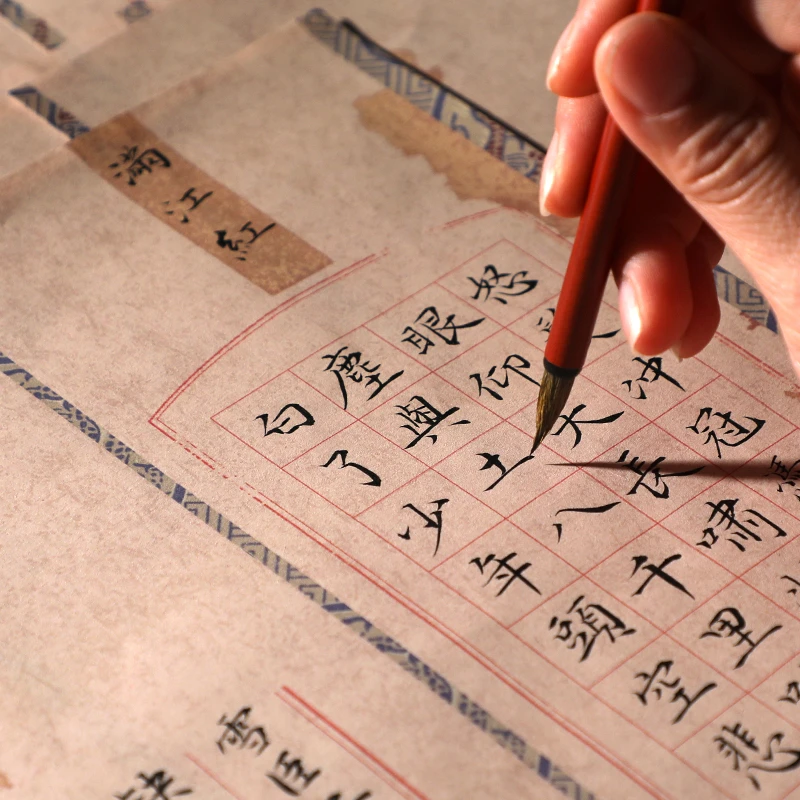 滿江紅
怒沖冠
眼仰天長嘯
塵與土八千里
白了少年頭空悲
雪臣
缺